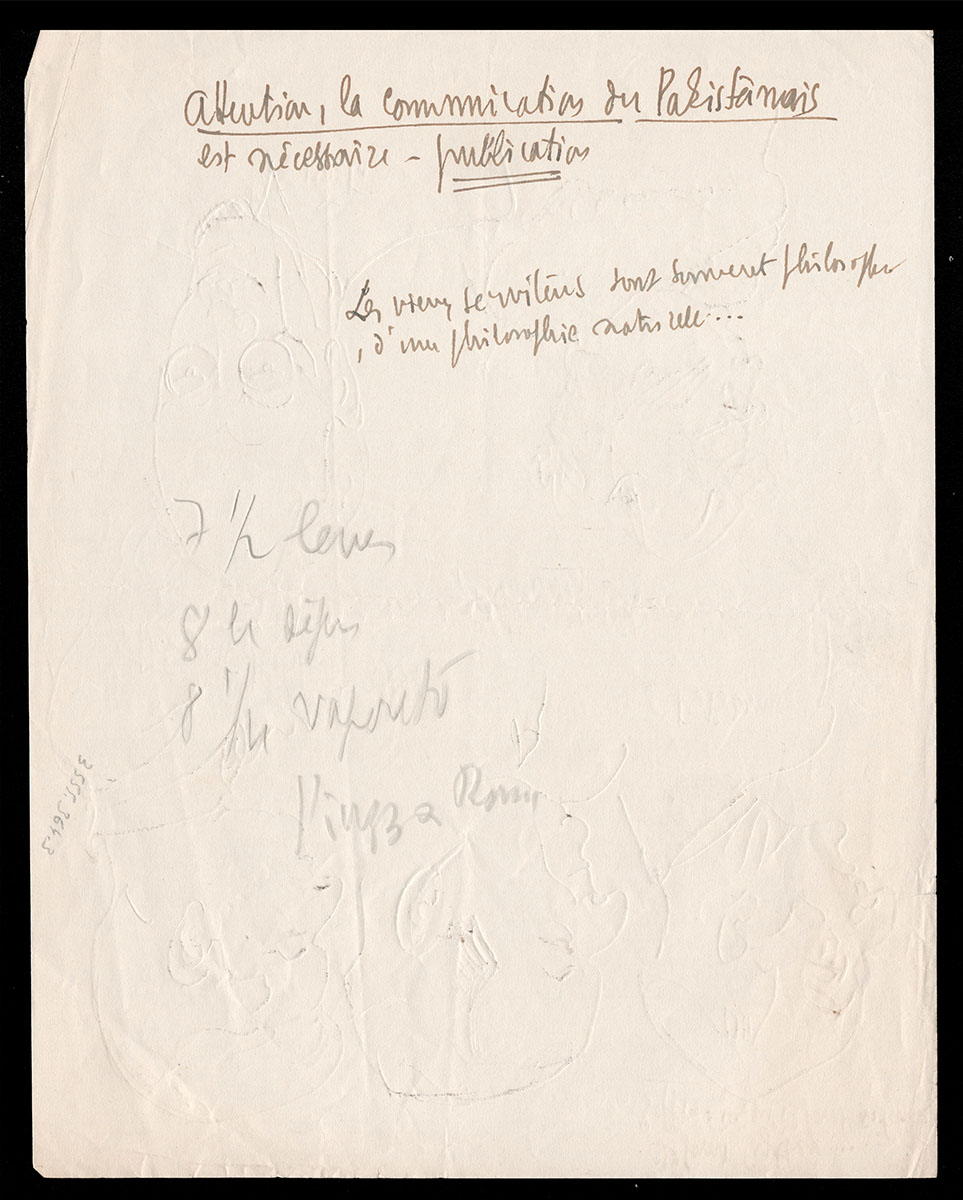 Attention, la communication du Pakistanais
est nécessaire – publication
Les vieux serviteurs sont souvent philosophes
, d'une philosophie naturelle...
7 1/2 lever
8 le déjeu
8 1/2 vaporetto
Piazza Roma
3555.364.3